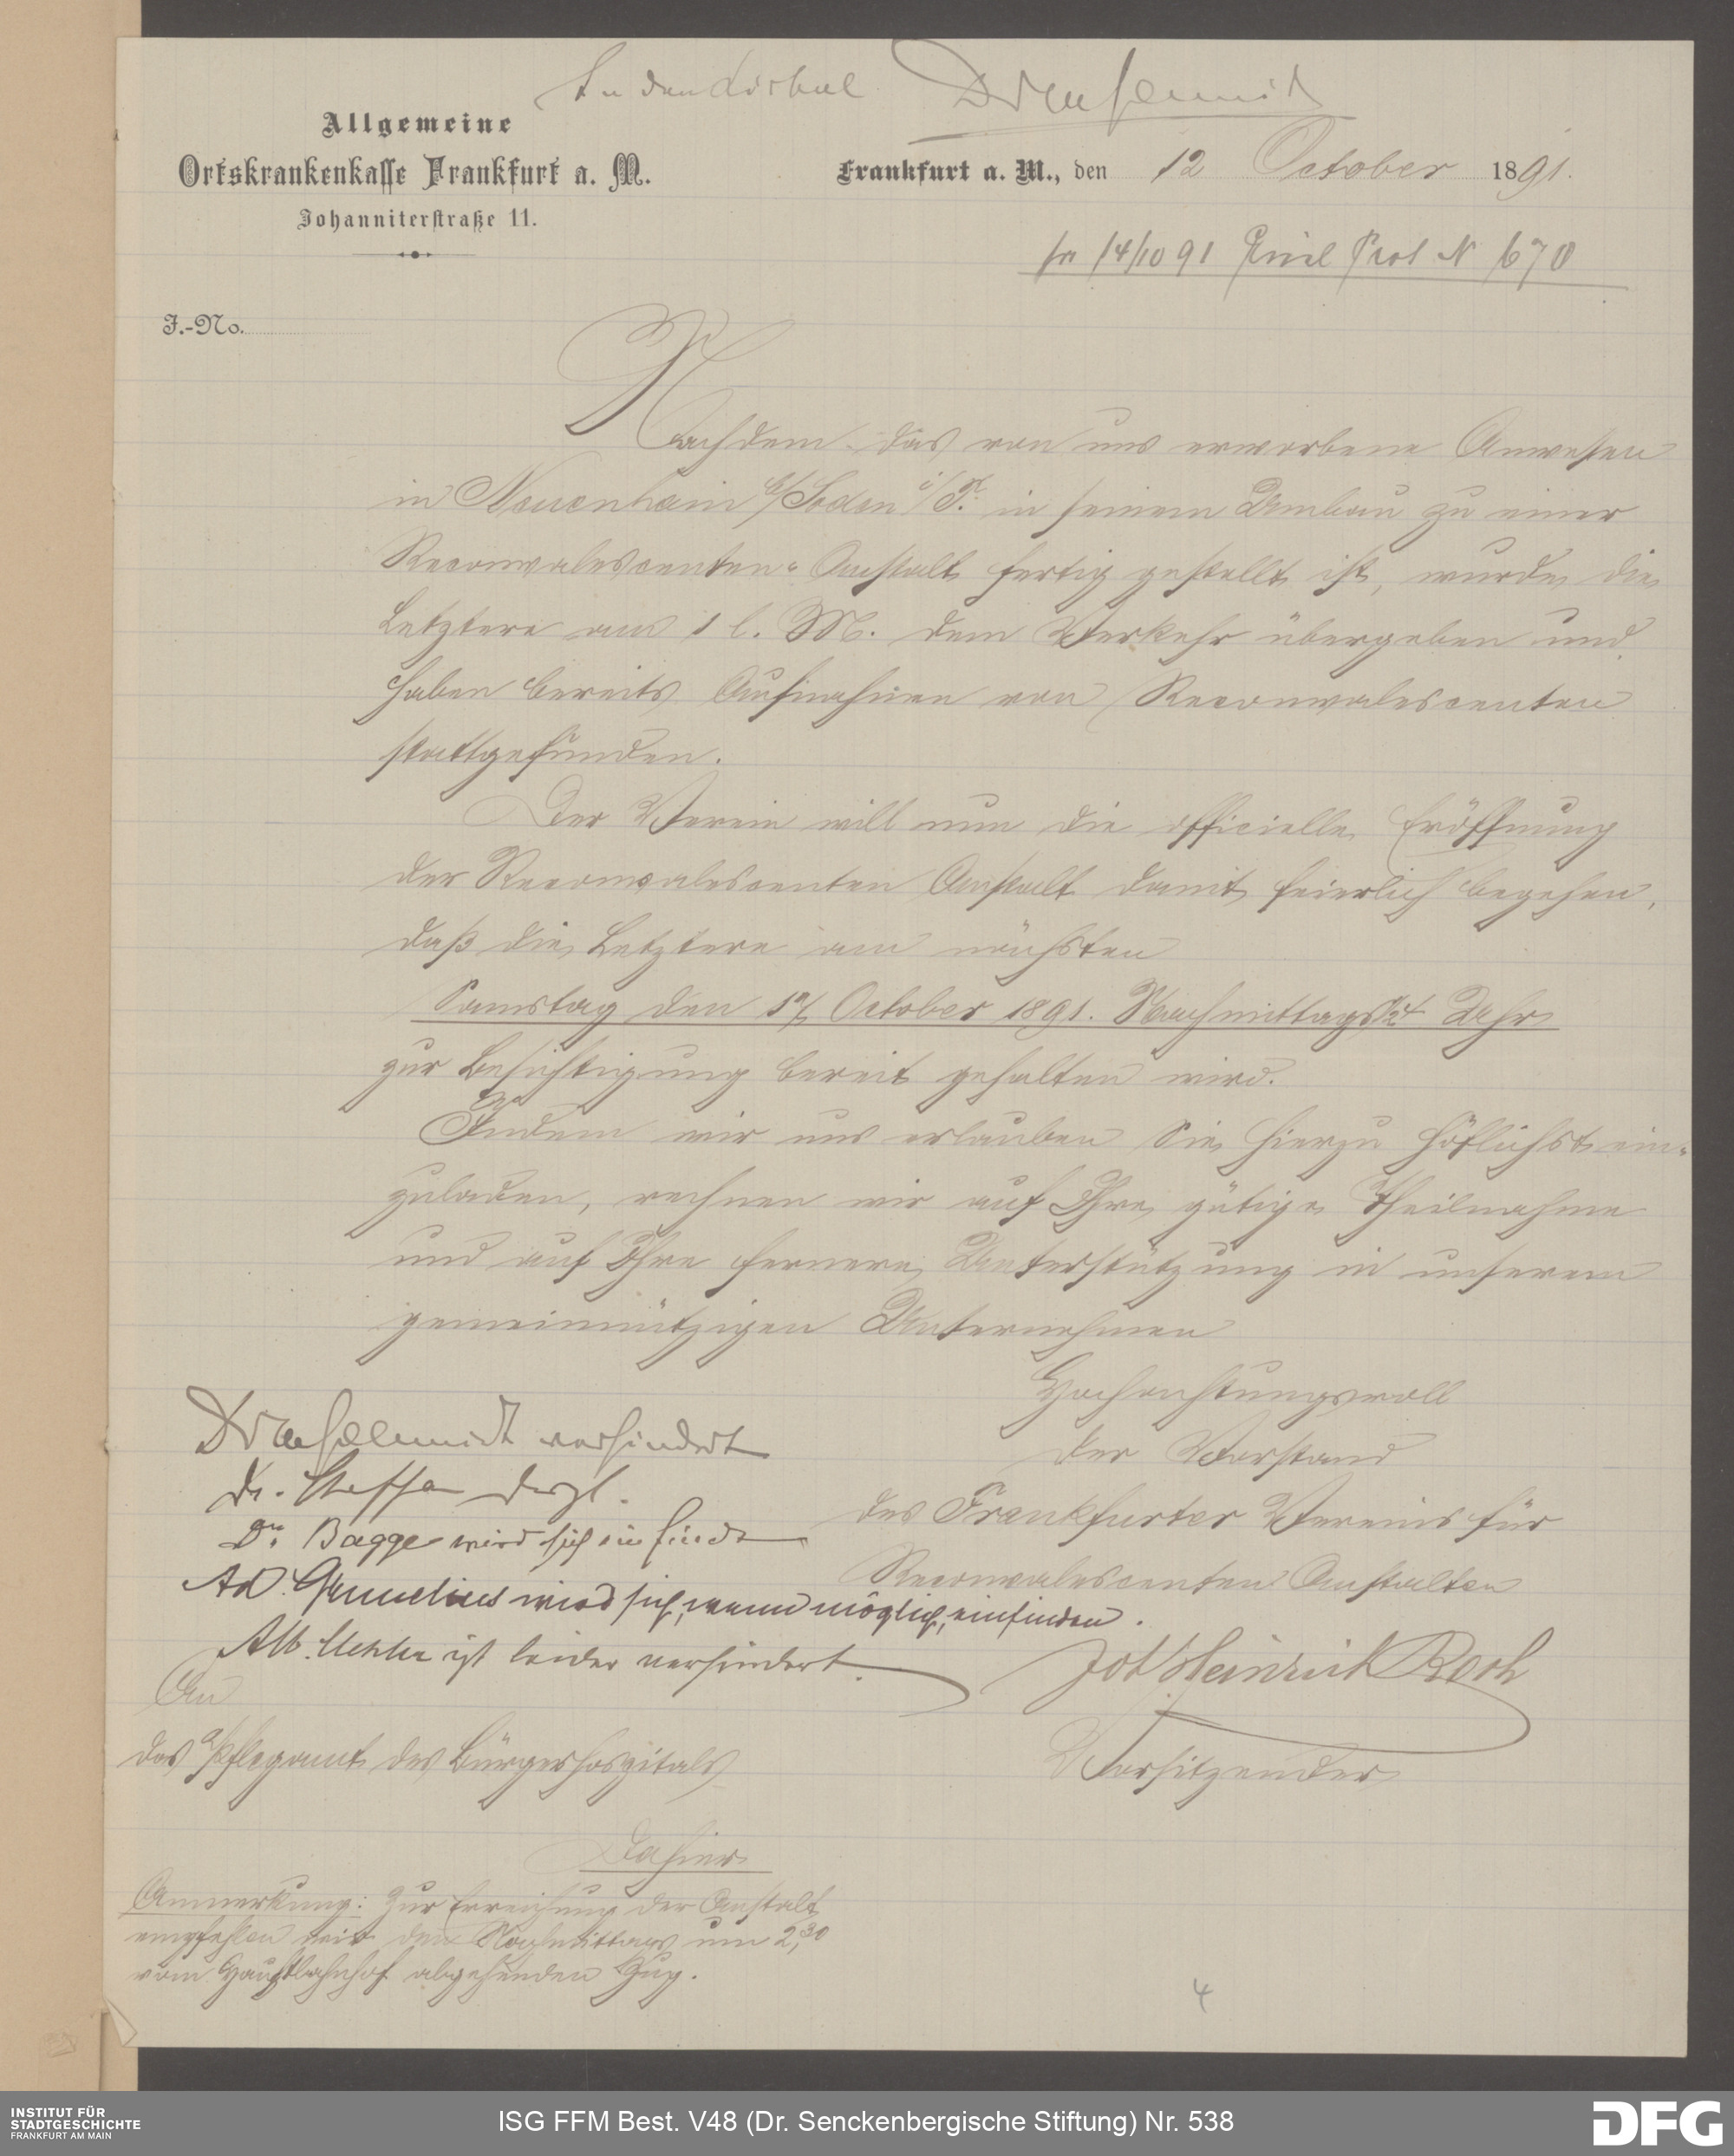 Allgemeine
Ortskrankenkasse Frankfurt a. M.
Johanniterstraße 11.
Frankfurt a. M., den 12 October 1891.
14/10 91 Prot N 670
J.-No.
Nachdem das von uns erworbene Anwesen
in Neuenhain b/Soden i/T. in seinem Umbau zu einer
Reconvalescenten-Anstalt fertig gestellt ist, wurde die
Letztere am 1 l. M. dem Verkehr übergeben und
haben bereits Aufnahmen von Reconvalescenten
stattgefunden.
Der Verein will nun die officielle Eröffnung
der Reconvalescenten Anstalt damit feierlich begehen,
daß die Letztere am nächsten
Samstag den 17 October 1891. Nachmittags Uhr
zur Besichtigung bereit gehalten wird.
Indem wir uns erlauben Sie hierzu höflichst ein-
zuladen, rechnen wir auf Ihre gütige Theilnahme
und auf Ihre fernere Unterstützung in unserem
gemeinnützigen Unternehmen
Hochachtungsvoll
Der Vorstand
des Frankfurter Vereins für
Reconvalescenten Anstalten
Joh Heinrich Roth
Vorsitzender
verhindert
Dr. dergl.
Dr. Bagge wird sich einfinden
Ad. wird sich, wenn möglich, einfinden.
Alb. ist leider verhindert.
An
das Pflegamt des Bürgerhospitals
Dahier
Anmerkung: Zur Erreichung der Anstalt
empfehlen wir den Nachmittags um 2,30
vom Hauptbahnhof abgehenden Zug.
4
INSTITUT FÜR
STADTGESCHICHTE
FRANKFURT AM MAIN
ISG FFM Best. V48 (Dr. Senckenbergische Stiftung) Nr. 538
DFG